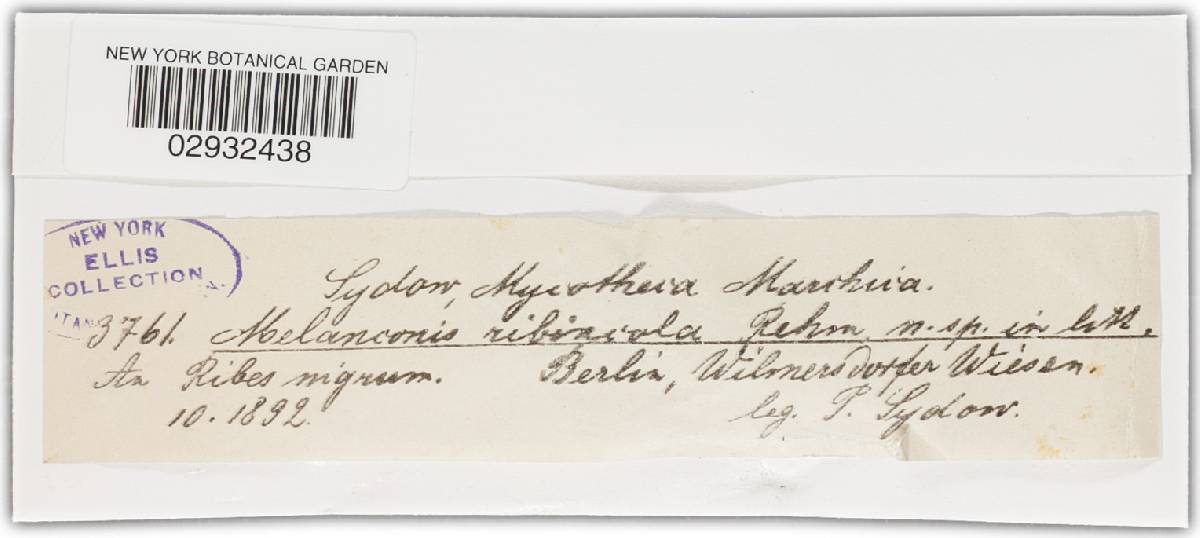 NEW YORK BOTANICAL GARDEN
02932438
NEW YORK
ELLIS
COLLECTION
Sydow, Mycotheca Marchica.
3761. Melanconis ribincola Rehm n. sp. in litt.
An Ribes nigrum. Berlin, Wilmersdorfer Wiesen.
10. 1892. leg. P. Sydow.